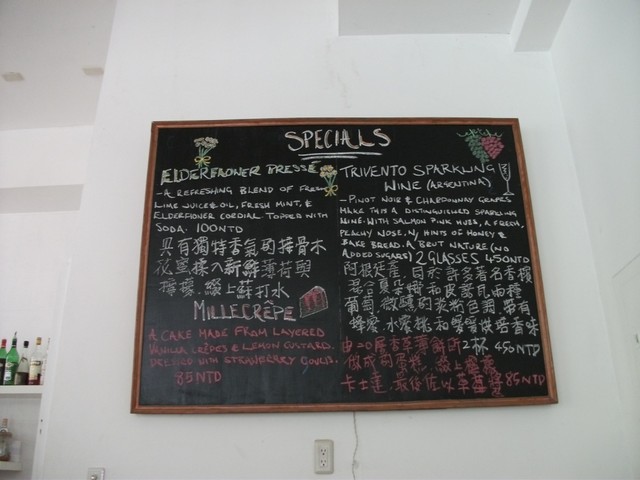 SPECIALS
ELDERFLOWER PRESSÉ
- A REFRESHING BLEND OF FRESH
LIME JUICE & OIL, FRESH MINT, &
ELDERFLOWER CORDIAL. TOPPED WITH
SODA. 100NTD
具有獨特香氣的接骨木
花蜜揉入新鮮薄荷與
檸檬, 綴上蘇打水
MILLECRÊPE
A CAKE MADE FROM LAYERED
VANILLA CRÊPES & LEMON CUSTARD.
DRESSED WITH STRAWBERRY COULIS.
85NTD
TRIVENTO SPARKLING
WINE (ARGENTINA)
- PINOT NOIR & CHARDONNAY GRAPES
MAKE THIS A DISTINGUISHED SPARKLING
WINE. WITH SALMON PINK HUES, A FRESH,
PEACHY NOSE, W/ HINTS OF HONEY &
BAKE BREAD. A BRUT NATURE (NO
ADDED SUGARS) 2 GLASSES 450NTD
阿根廷產, 同於許多著名香檳
混合夏朵娜和皮諾瓦兩種
葡萄, 微醺的淡粉色調, 帶有
蜂蜜, 水蜜桃和烘焙香味
2杯 450NTD
由20層香草薄餅所
做成的蛋糕, 綴上檸檬
卡士達, 最後佐以草莓醬 85NTD